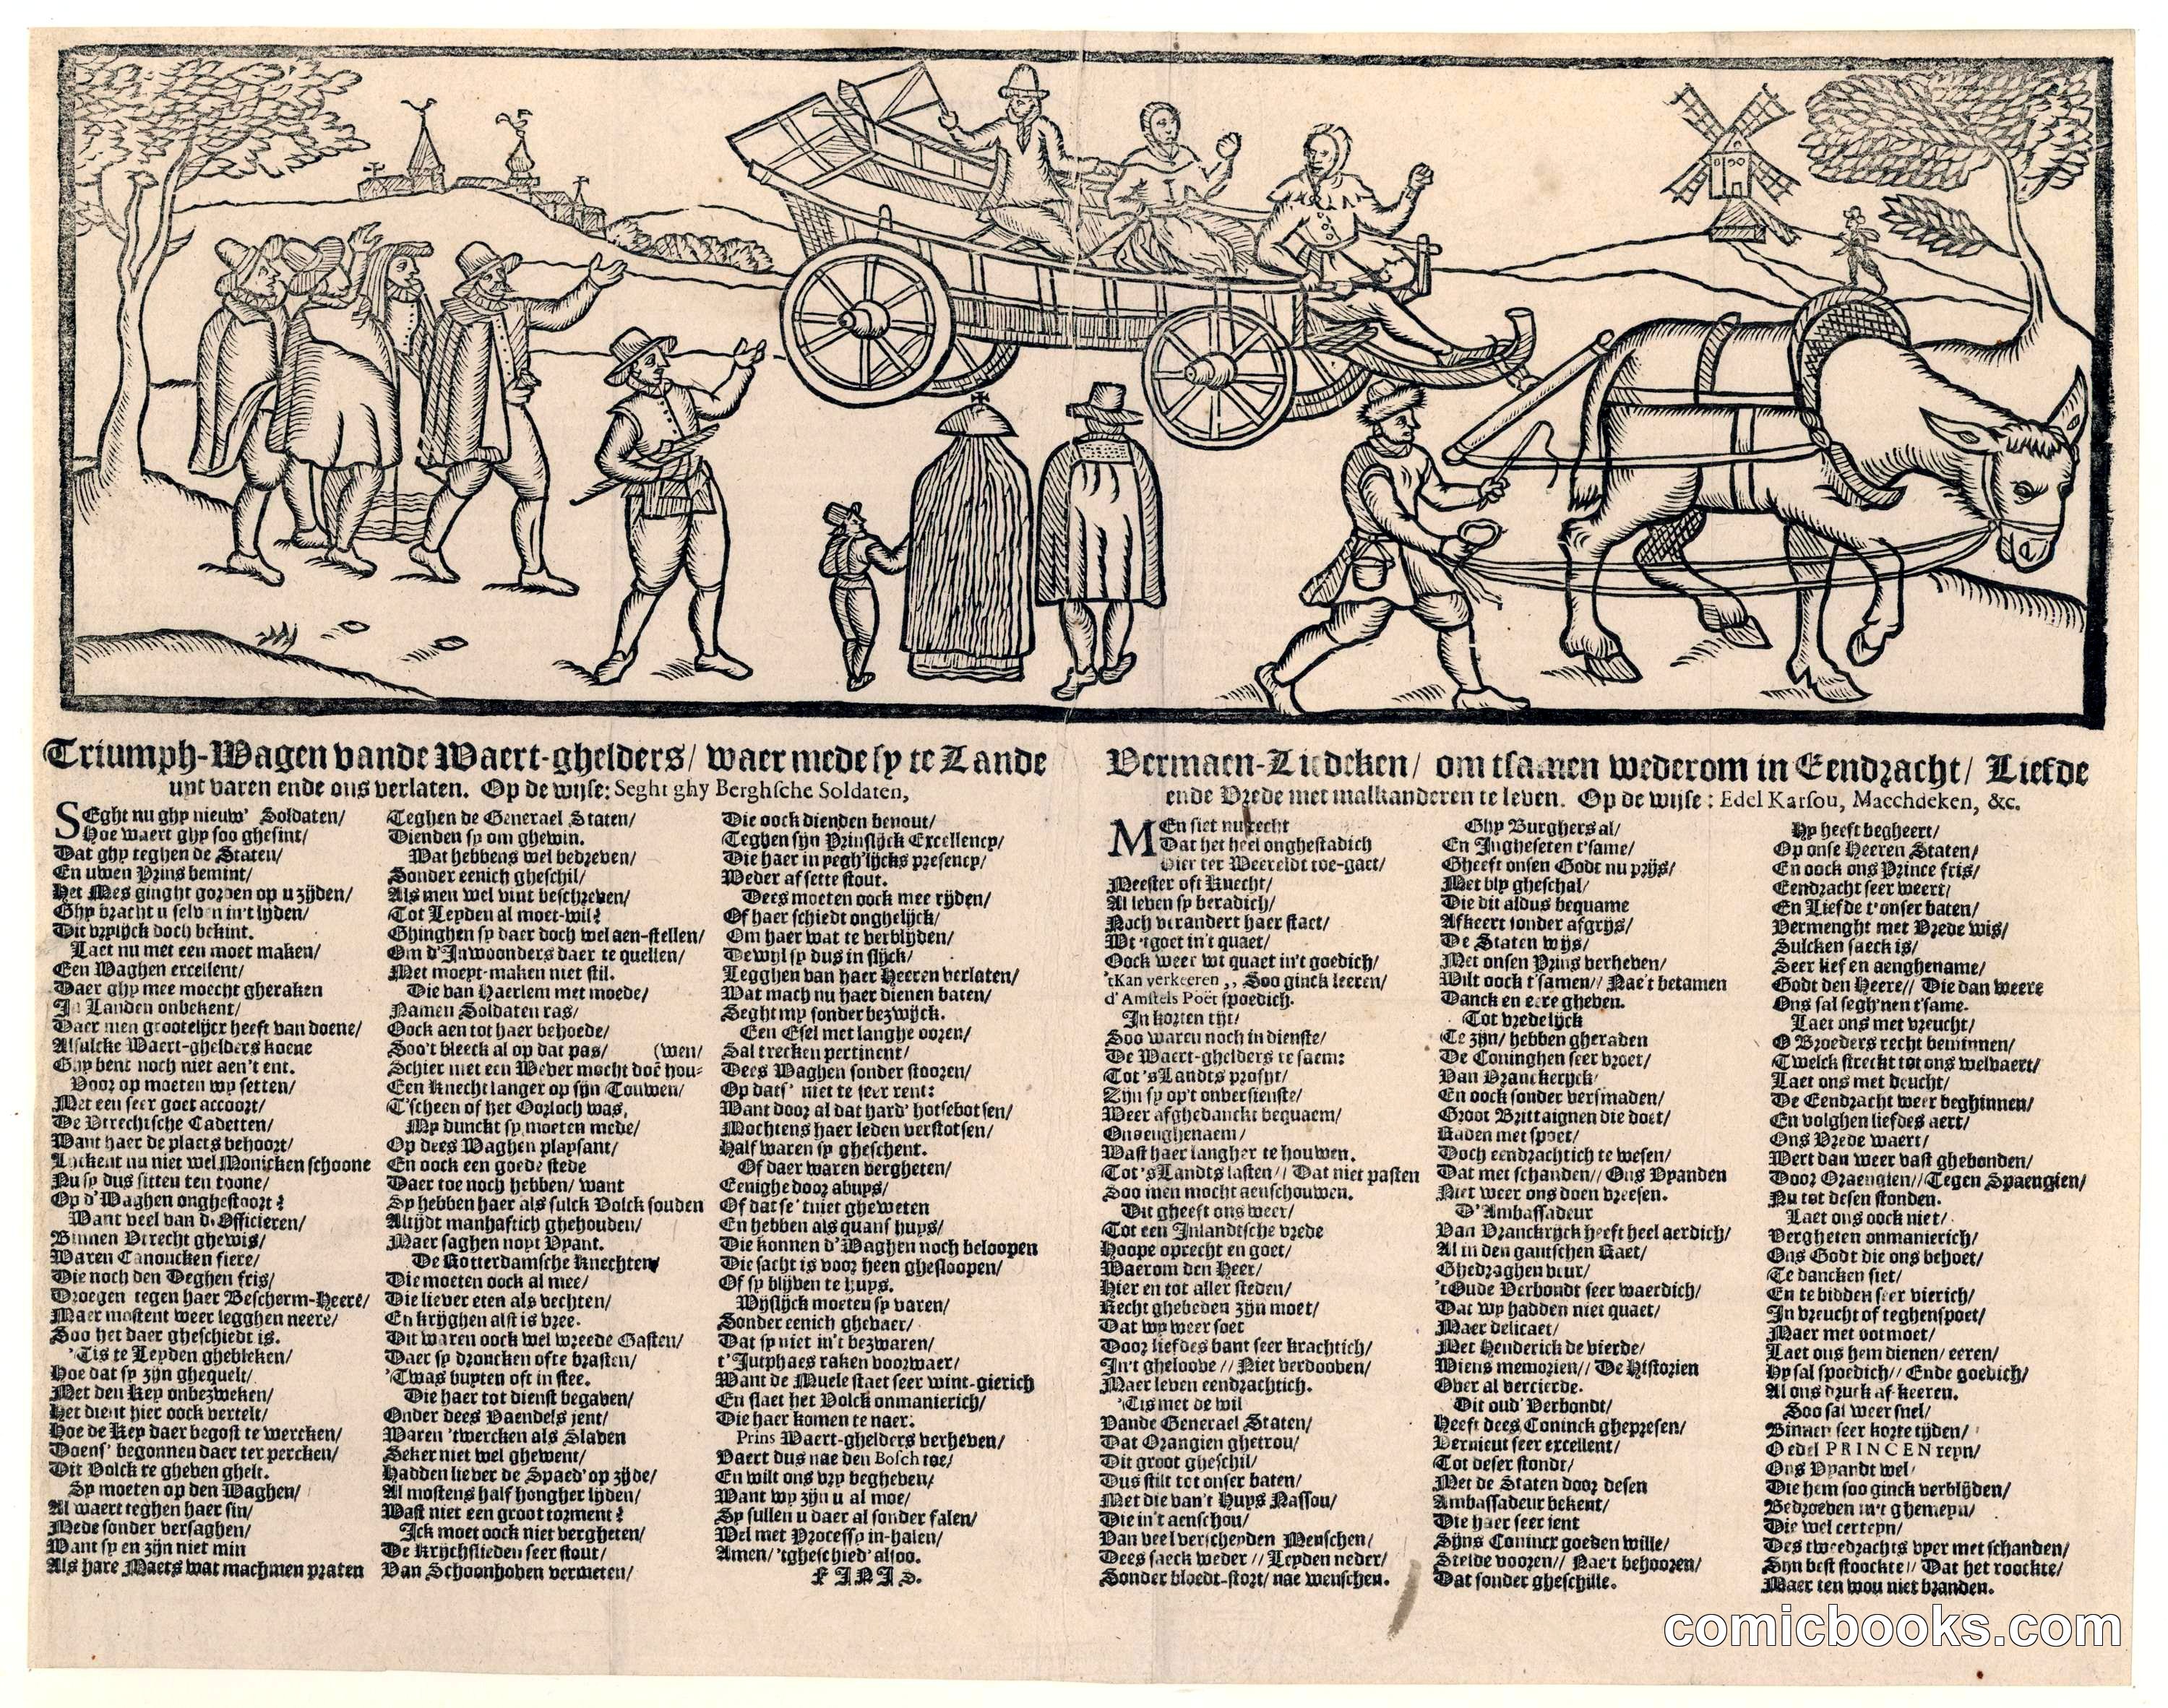 Triumph-Wagen vande Waert-ghelders/ waer mede sy te Lande
uyt varen ende ons verlaten. Op de wijse: Seght ghy Berghsche Soldaten,
SEght nu ghy nieuw' Soldaten/
Hoe waert ghy soo ghesint/
Dat ghy teghen de Staten/
En uwen Prins bemint/
Het Mes ginght gorden op u zijden/
Ghy bracht u selven in't lyden/
Dit vrylijck doch bekint.
Laet nu met een moet maken/
Een Waghen excellent/
Daer ghy mee moecht gheraken
In Landen onbekent/
Daer men grootelijcx heeft van doene/
Alsulcke Waert-ghelders koene
Ghy bent noch niet aen't ent.
Voor op moeten wy setten/
Met een seer goet accoort/
De Utrechtsche Cadetten/
Want haer de plaets behoort/
Lijckent nu niet wel Monicken schoone
Nu sy dus sitten ten toone/
Op d'Waghen onghestoort?
Want veel van d'Officieren/
Binnen Utrecht ghewis/
Waren Canoncken fiere/
Die noch den Deghen fris/
Droegen tegen haer Bescherm-Heere/
Maer mostent weer legghen neere/
Soo het daer gheschiedt is.
'Tis te Leyden ghebleken/
Hoe dat sy zijn ghequelt/
Met den Key onbezweken/
Het dient hier oock vertelt/
Hoe de Key daer begost te wercken/
Doens' begonnen daer ter percken/
Dit Volck te gheven ghelt.
Sy moeten op den Waghen/
Al waert teghen haer sin/
Mede sonder versaghen/
Want sy en zijn niet min
Als hare Maets wat machmen praten
Teghen de Generael Staten/
Dienden sy om ghewin.
Wat hebbens wel bedreven/
Sonder eenich gheschil/
Als men wel vint beschreven/
Tot Leyden al moet-wil?
Ghinghen sy daer doch wel aen-stellen/
Om d'Inwoonders daer te quellen/
Met moeyt-maken niet stil.
Die van Haerlem met moede/
Namen Soldaten ras/
Oock aen tot haer behoede/
Soo't bleeck al op dat pas/ (wen/
Schier met een Wever mocht doē hou-
Een Knecht langer op sijn Touwen/
T'scheen of het Oorloch was,
My dunckt sy moeten mede/
Op dees Waghen playsant/
En oock een goede stede
Daer toe noch hebben/ want
Sy hebben haer als sulck Volck souden
Altijdt manhaftich ghehouden/
Maer saghen noyt Vyant.
De Rotterdamsche Knechten/
Die moeten oock al mee/
Die liever eten als vechten/
En krijghen alst is vree.
Dit waren oock wel wreede Gasten/
Daer sy droncken ofte brasten/
'Twas buyten oft in stee.
Die haer tot dienst begaven/
Onder dees Vaendels jent/
Waren 'twercken als Slaven
Seker niet wel ghewent/
Hadden liever de Spaed' op zijde/
Al mostens half hongher lyden/
Wast niet een groot torment?
Ick moet oock niet vergheten/
De Krijchslieden seer stout/
Van Schoonhoven vermeten/
Die oock dienden benout/
Teghen sijn Prinslijck Excellency/
Die haer in yegh'lijcks presency/
Weder afsette stout.
Dees moeten oock mee ryden/
Of haer schiedt onghelijck/
Om haer wat te verblyden/
Dewyl sy dus in slijck/
Legghen van haer Heeren verlaten/
Wat mach nu haer dienen baten/
Seght my sonder bezwijck.
Een Esel met langhe ooren/
Sal trecken pertinent/
Dees Waghen sonder stooren/
Op dats' niet te seer rent:
Want door al dat hard' hotsebotsen/
Mochtens haer leden verstotsen/
Half waren sy gheschent.
Of daer waren vergheten/
Eenighe door abuys/
Of dat se' tniet gheweten
En hebben als quans huys/
Die konnen d'Waghen noch beloopen
Die sacht is voor heen ghesloopen/
Of sy blyven te huys.
Wijslijck moeten sy varen/
Sonder eenich ghevaer/
Dat sy niet in't bezwaren/
t'Jutphaes raken voorwaer/
Want de Muele staet seer wint-gierich
En slaet het Volck onmanierich/
Die haer komen te naer:
Prins Waert-ghelders verheven/
Vaert dus nae den Bosch toe/
En wilt ons vry begheven/
Want wy zijn u al moe/
Sy sullen u daer al sonder falen/
Wel met Processy in-halen/
Amen/ 'tgheschied' alsoo.
FINIS.
Vermaen-Liedeken/ om tsamen wederom in Eendracht/ Liefde
ende Vrede met malkanderen te leven. Op de wijse: Edel Karsou, Maechdeken, &c.
MEn siet nu recht
Dat het heel onghestadich
Hier ter Weereldt toe-gaet/
Meester oft Knecht/
Al leven sy beradich/
Noch verandert haer staet/
Wt 'tgoet in't quaet/
Oock weer wt quaet in't goedich/
'tKan verkeeren,, Soo ginck leeren/
d'Amstels Poët spoedich.
In korten tijt/
Soo waren noch in dienste/
De Waert-ghelders te saem:
Tot 's Landts profijt/
Zijn sy op't onversienste/
Weer afghedanckt bequaem/
Onaenghenaem/
Wast haer langher te houwen.
Tot 's Landts lasten// Dat niet pasten
Soo men mocht aenschouwen.
Dit gheeft ons weer/
Tot een Inlandtsche vrede
Hoope oprecht en goet/
Waerom den Heer/
Hier en tot aller steden/
Recht ghebeden zijn moet/
Dat wy weer soet
Door liefdes bant seer krachtich/
In't gheloove// Niet verdooven/
Maer leven eendrachtich.
'Tis met de wil
Vande Generael Staten/
Dat Orangien ghetrou/
Dit groot gheschil/
Dus stilt tot onser baten/
Met die van't Huys Nassou/
Die in't aenschou/
Van veel verscheyden Menschen/
Dees saeck weder// Leyden neder/
Sonder bloedt-stort/ nae wenschen.
Ghy Burghers al/
En Ingheseten t'same/
Gheeft onsen Godt nu prijs/
Met bly gheschal/
Die dit aldus bequame
Afkeert sonder afgrijs/
De Staten wijs/
Met onsen Prins verheven/
Wilt oock t'samen// Nae't betamen
Danck en eere gheven.
Tot vredelijck
Te zijn/ hebben gheraden
De Coninghen seer vroet/
Van Vranckerijck/
En oock sonder versmaden/
Groot Brittaignen die doet/
Raden met spoet/
Doch eendrachtich te wesen/
Dat met schanden// Ons Vyanden
Niet weer ons doen vreesen.
D'Ambassadeur
Van Vranckrijck heeft heel aerdich/
Al in den gantschen Raet/
Ghedraghen veur/
't Oude Verbondt seer waerdich/
Dat wy hadden niet quaet/
Maer delicaet/
Met Henderick de vierde/
Wiens memorien// De Historien
Over al vercierde.
Dit oud' Verbondt/
Heeft dees Coninck ghepresen/
Vernieut seer excellent/
Tot deser stondt/
Met de Staten door desen
Ambassadeur bekent/
Die haer seer jent
Sijns Coninck goeden wille/
Stelde vooren// Nae't behooren/
Dat sonder gheschille.
Hy heeft begheert/
Op onse Heeren Staten/
En oock ons Prince fris/
Eendracht seer weert/
En Liefde t'onser baten/
Vermenght met Vrede wis/
Sulcken saeck is/
Seer lief en aenghename/
Godt den Heere// Die dan weere
Ons sal segh'nen t'same.
Laet ons met vreucht/
O Broeders recht beminnen/
T'welck streckt tot ons welvaert/
Laet ons met deucht/
De Eendracht weer beghinnen/
En volghen liefdes aert/
Ons Vrede waert/
Wert dan weer vast ghebonden/
Door Oraengien// Tegen Spaengien/
Nu tot desen stonden.
Laet ons oock niet/
Vergheten onmanierich/
Ons Godt die ons behoet/
Te dancken siet/
En te bidden seer vierich/
In vreucht of teghenspoet/
Maer met ootmoet/
Laet ons hem dienen/ eeren/
Hy sal spoedich// Ende goedich/
Al ons druck af-keeren.
Soo sal weer snel/
Binnen seer korte tijden/
O edel PRINCEN reyn/
Ons Vyandt wel/
Die hem soo ginck verblijden/
Bedroeven in't ghemeyn/
Die wel certeyn/
Des tweedrachts vyer met schanden/
Sijn best stoockte// Dat het roockte/
Maer ten wou niet branden.
comicbooks.com